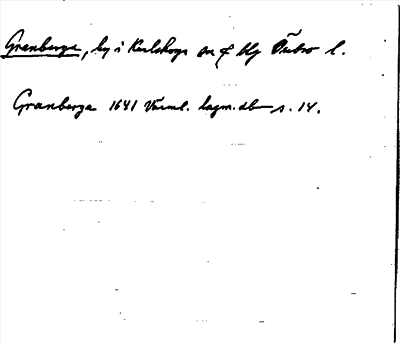 Granberga, by i Karlskoga sn o f klg Örebro l.
Granberga 1641 Värml. lagm.db s. 14.